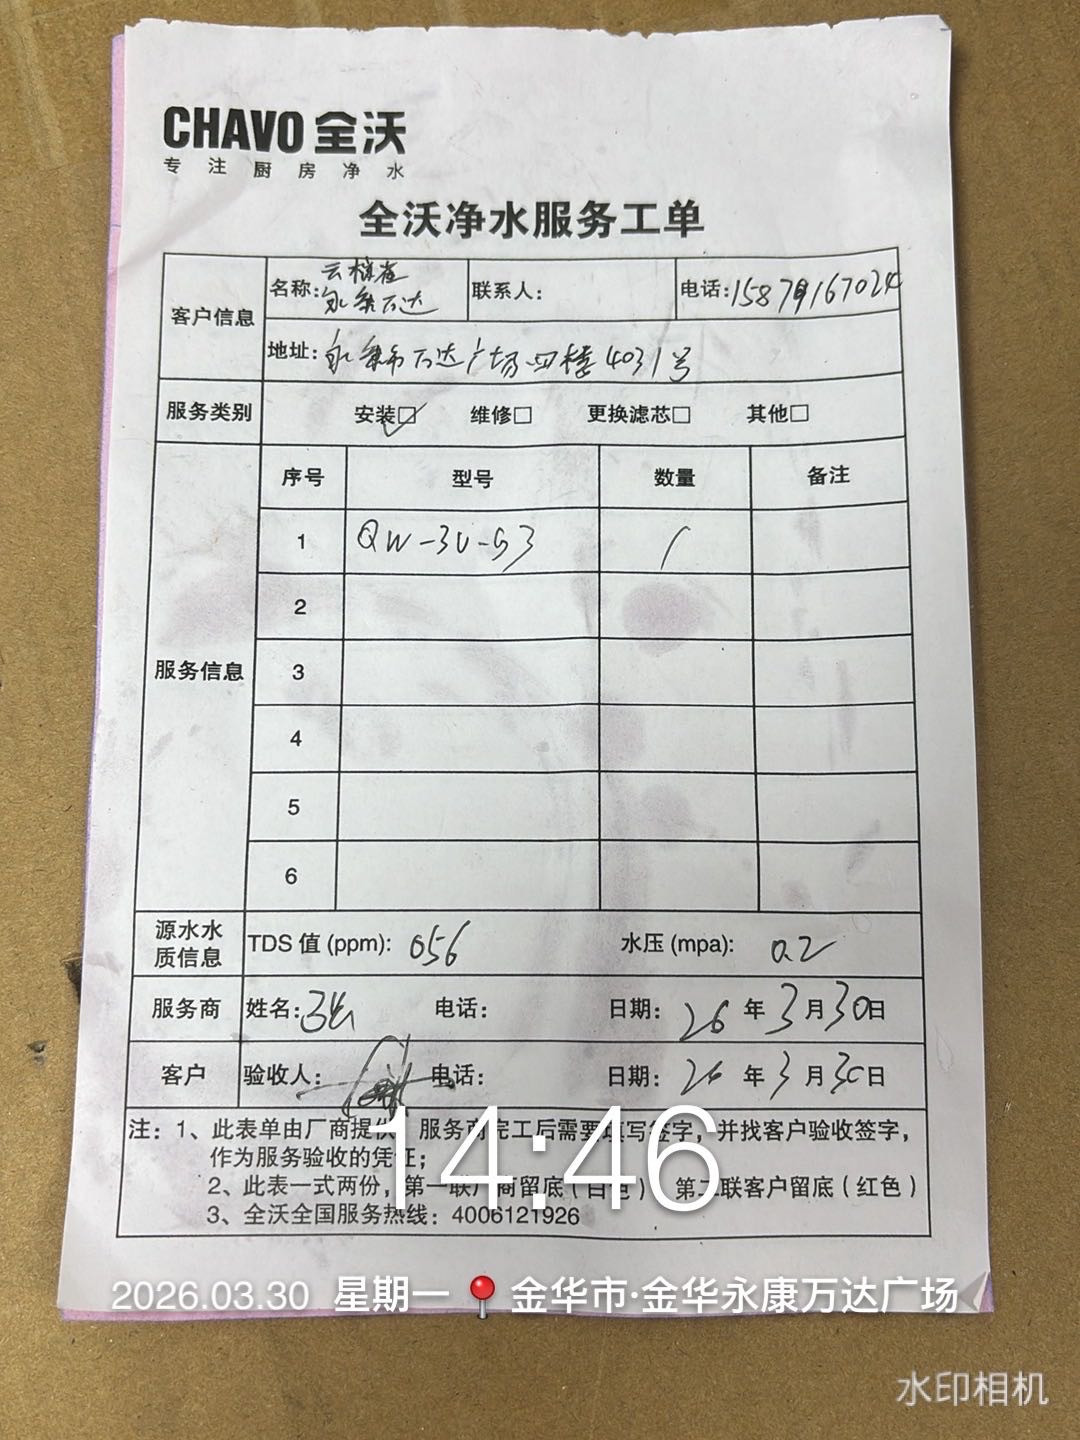 CHAVO 全沃
专注厨房净水
全沃净水服务工单
客户信息
名称:
永康万达
联系人:
电话:
地址: 永康市万达广场四楼4031号
服务类别 安装☑ 维修□ 更换滤芯□ 其他□
服务信息
序号 型号 数量 备注
1 QW-3U-G3 1
2
3
4
5
6
源水水质信息 TDS 值 (ppm): 056 水压 (mpa): 0.2
服务商 姓名: 电话: 日期: 26 年 3 月 30 日
客户 验收人: 电话: 日期: 26 年 3 月 30 日
注: 1、此表单由厂商提供 服务商完工后需要填写签字，并找客户验收签字，
作为服务验收的凭证；
2、此表一式两份，第一联厂商留底（白色） 第二联客户留底（红色）
3、全沃全国服务热线：4006121926
14:46
2026.03.30 星期一 📍 金华市·金华永康万达广场
水印相机